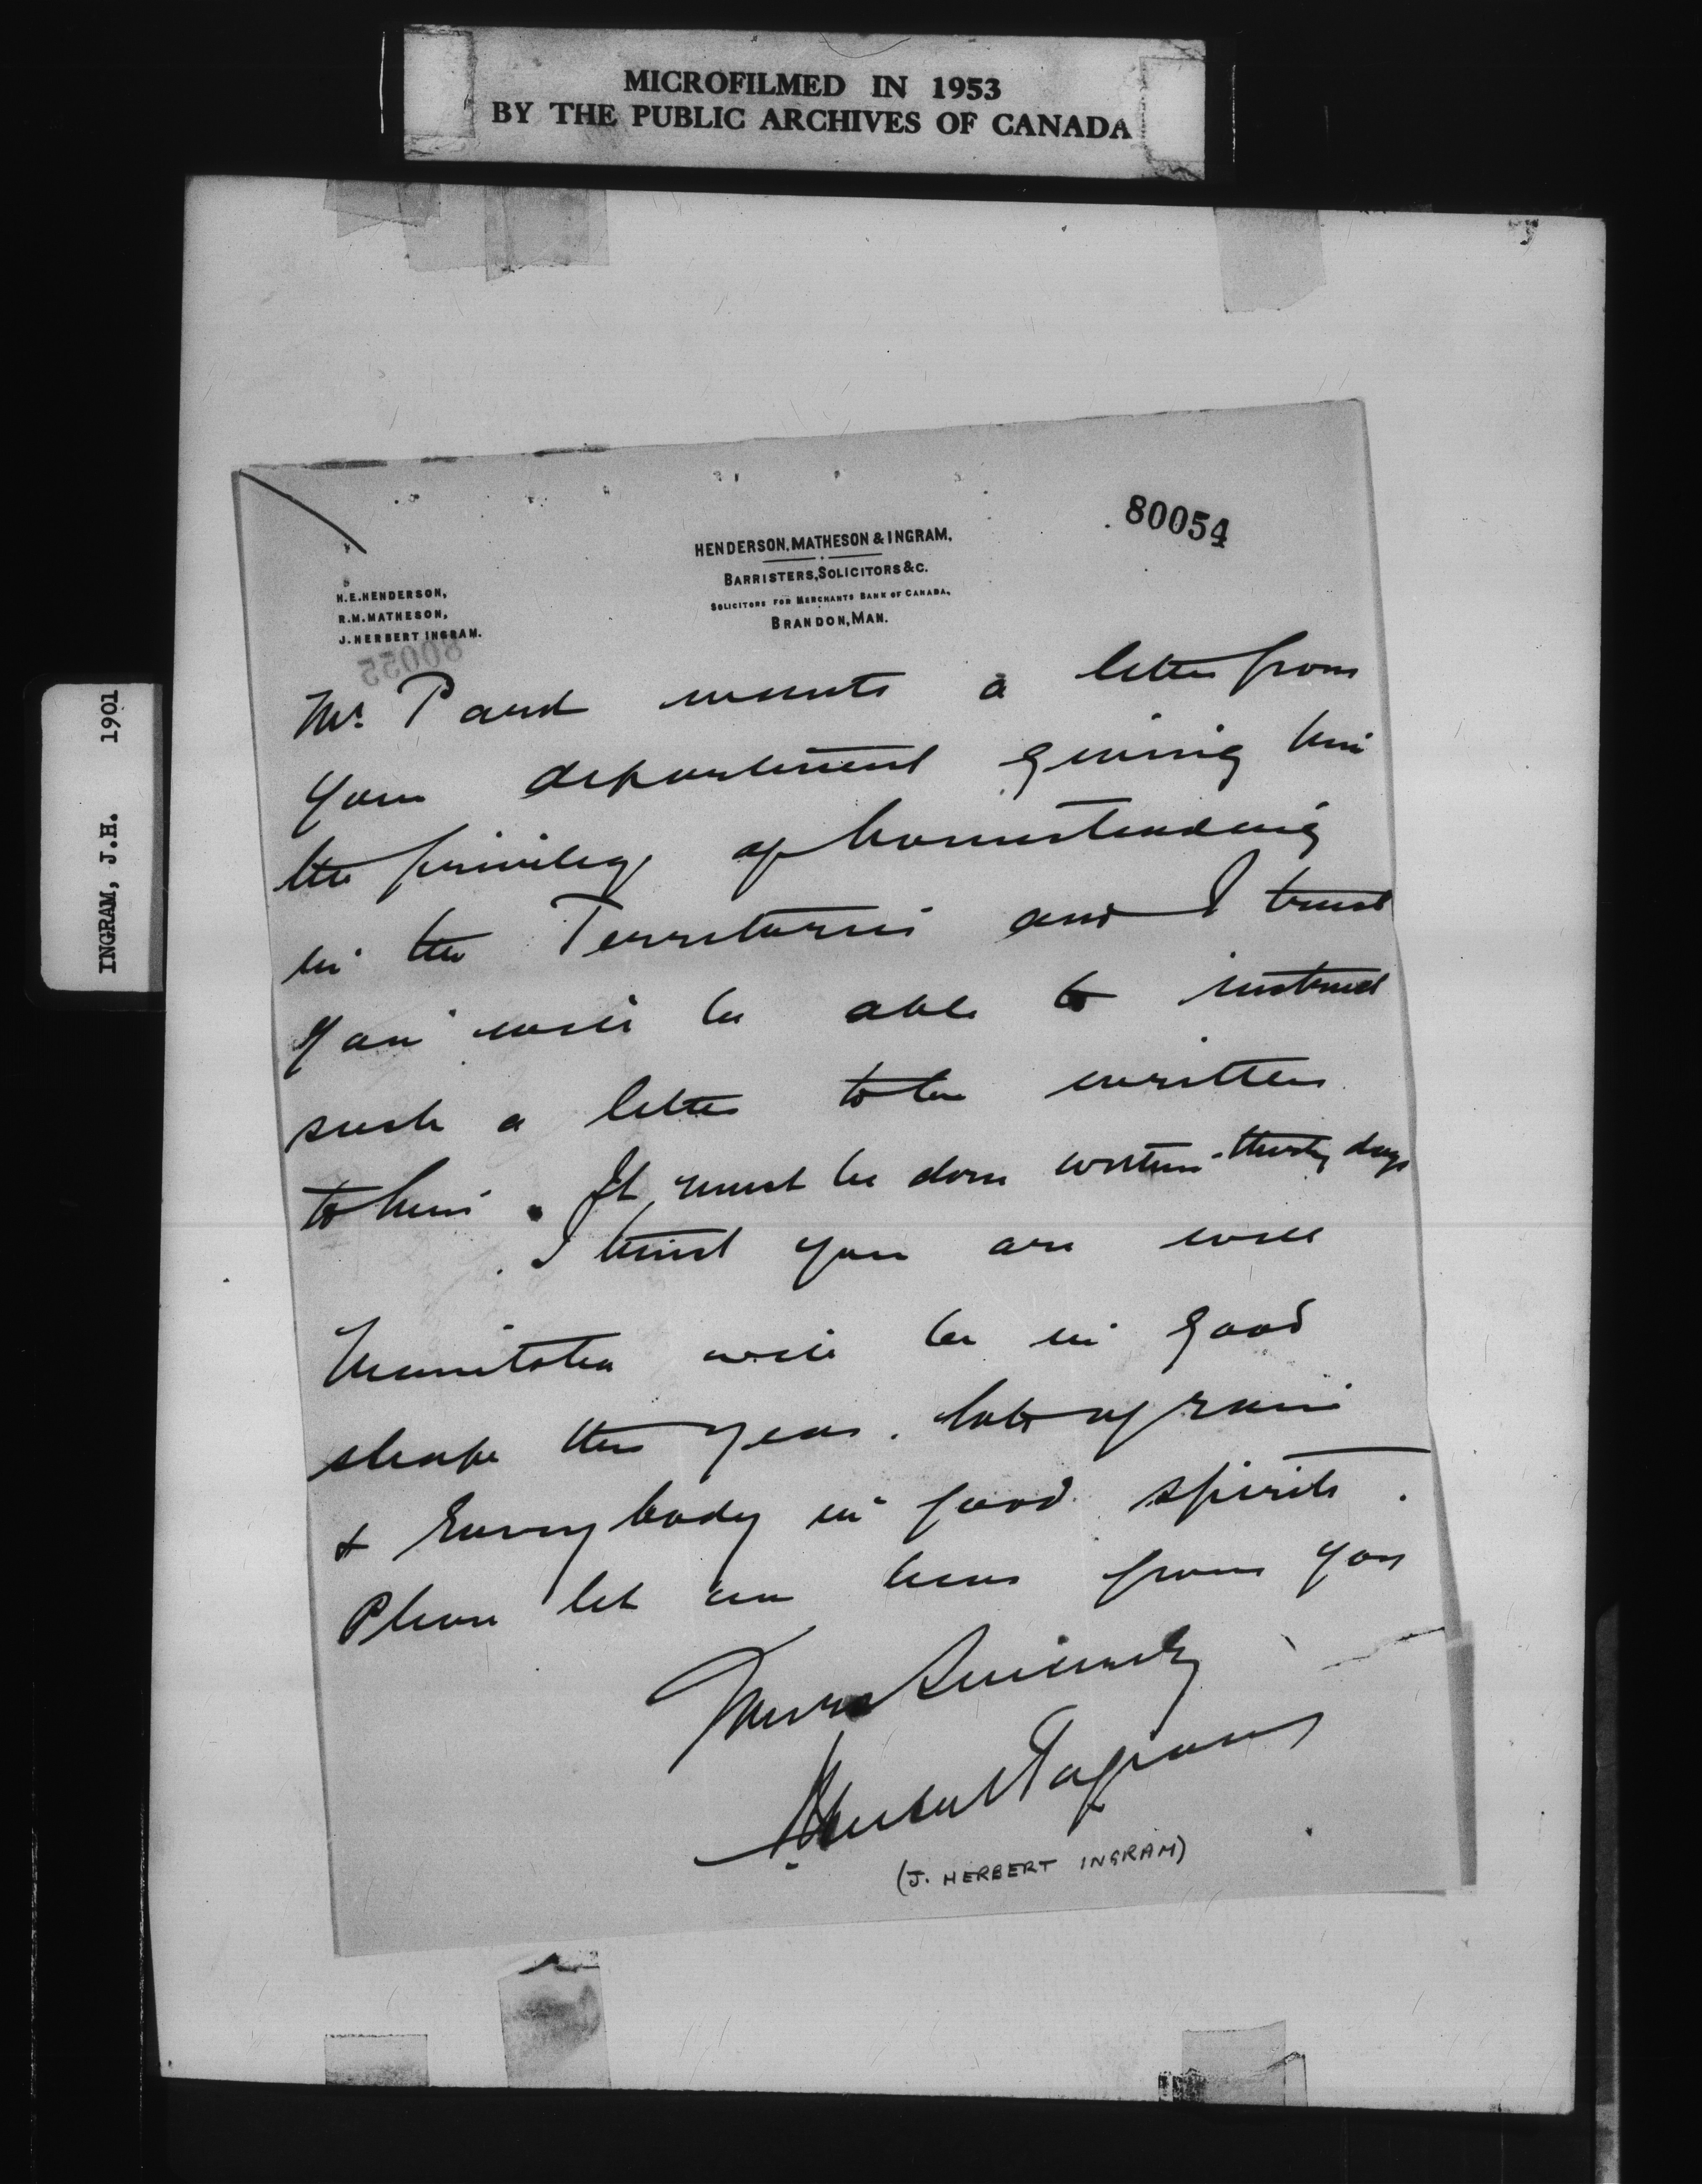 MICROFILMED IN 1953
BY THE PUBLIC ARCHIVES OF CANADA
INGRAM, J.H. 1901
80054
HENDERSON, MATHESON & INGRAM,
BARRISTERS, SOLICITORS &C.
SOLICITORS FOR MERCHANTS BANK OF CANADA,
BRANDON, MAN.
H.E. HENDERSON,
R.M. MATHESON,
J. HERBERT INGRAM.
80055
Mr. Pard wants a letter from
your department giving him
the privilege of homesteading
in the Territories and I trust
you will be able to instruct
such a letter to be written
to him. It must be done within thirty days
I trust you are well
Manitoba will be in good
shape this year. lots of rain
& Everybody in good spirits.
Please let me hear from you
Yours Sincerely
J Herbert Ingram
(J. HERBERT INGRAM)